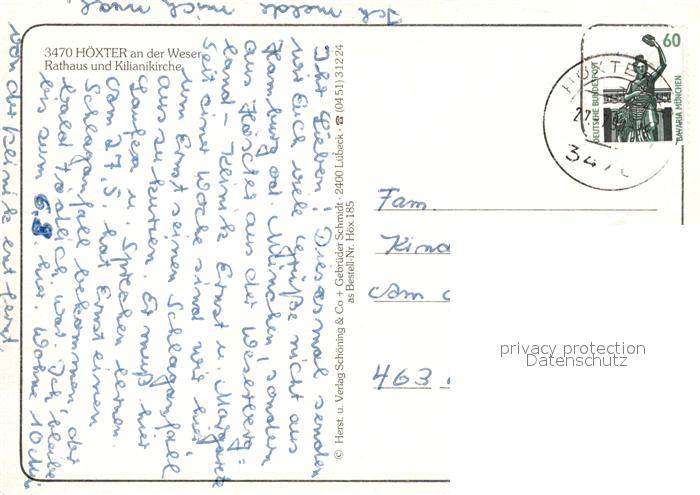 3470 HÖXTER an der Weser
Rathaus und Kilianikirche
Ihr Lieben! Diesmal senden
wir Euch viele Grüße nicht aus
Hamburg od. München sondern
aus Höxter aus der Weserberg=
land-Klinik Ernst u. Margarete
Seit einer Woche sind wir hier
um Ernst seinen Schlaganfall
auszukurieren. Er muß hier
Laufen u. Sprechen lernen.
Am 27.5. hat Ernst einen
Schlaganfall bekommen der
bald tödlich war. Ich bleibe
bis zum 6.8. hier. Wohne 10 Min.
von der Klinik entfernt.
Ich melde mich mal
© Herst. u. Verlag Schöning & Co + Gebrüder Schmidt · 2400 Lübeck · ☎ (0451) 31224
as Bestell-Nr. Höx 185
60
DEUTSCHE BUNDESPOST
BAVARIA MÜNCHEN
HÖXTER
347
Fam.
Kind
Am
463
privacy protection
Datenschutz